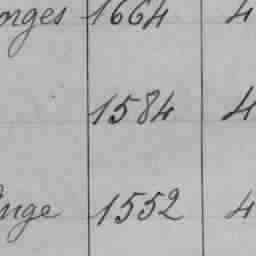 orges 1664 4
1584 4
inge 1552 4